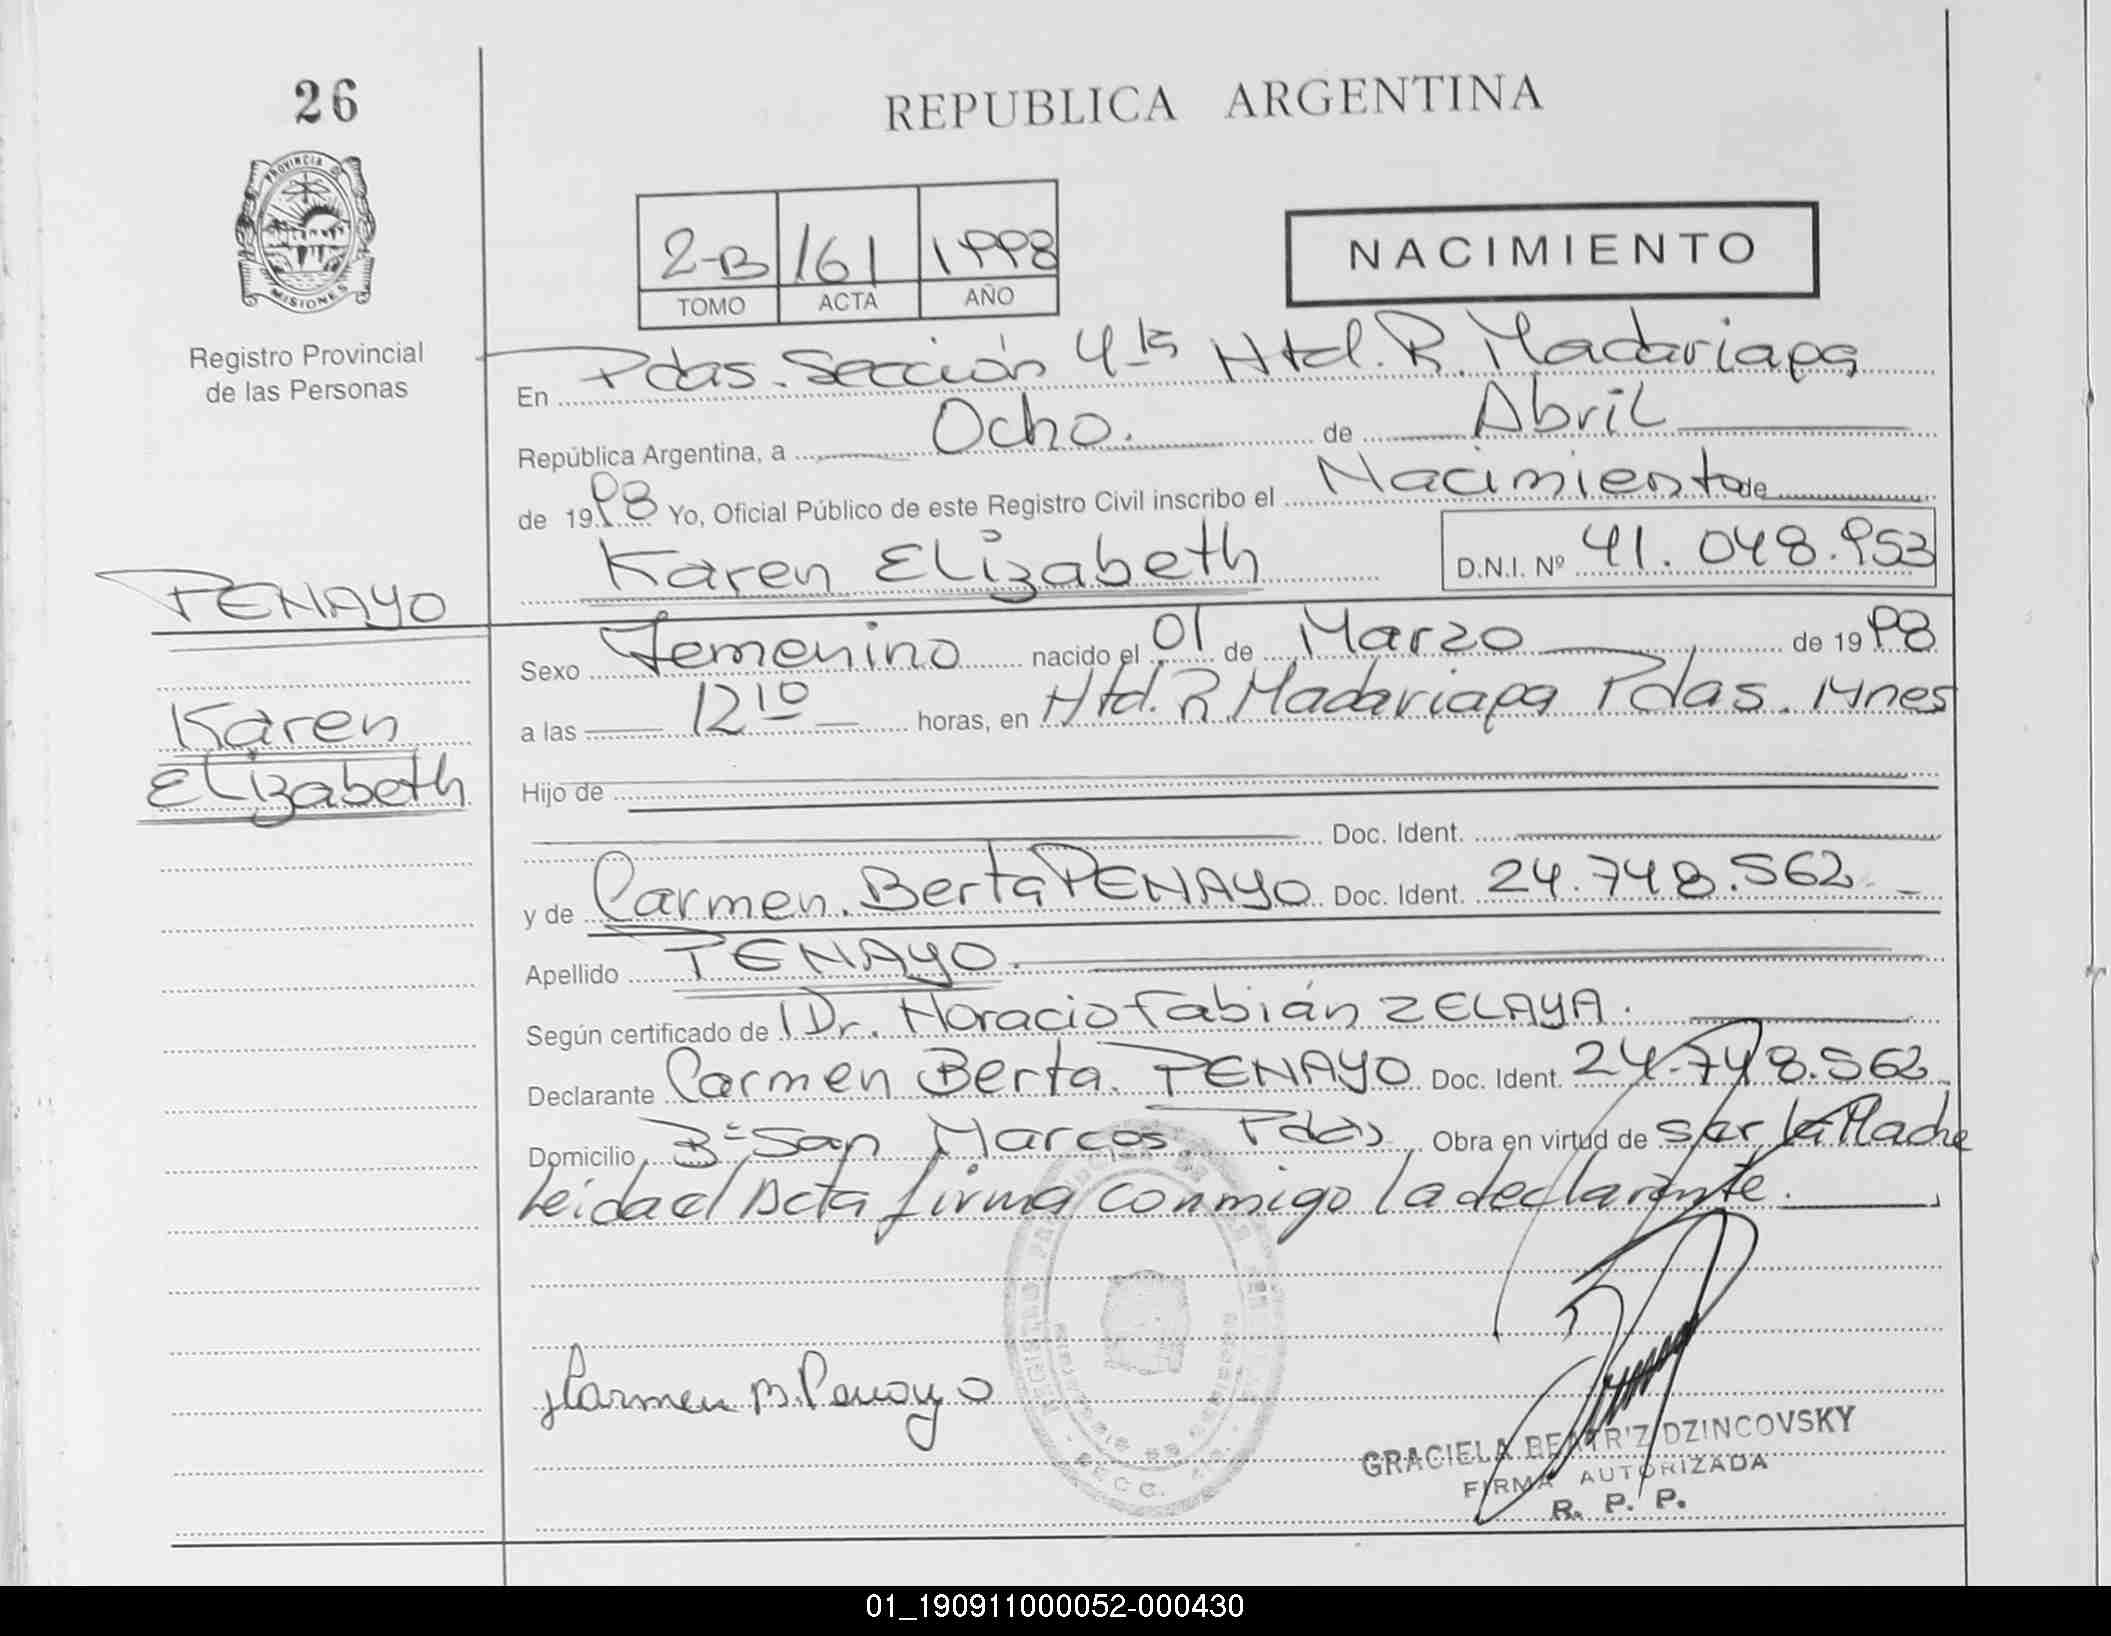 26
REPUBLICA ARGENTINA
PROVINCIA DE
MISIONES
Registro Provincial
de las Personas
2-B 161 1998
TOMO ACTA AÑO
NACIMIENTO
En Pdas. Sección 4ta Htal. R. Madariaga
República Argentina, a Ocho. de Abril
de 1998 Yo, Oficial Público de este Registro Civil inscribo el Nacimiento de
Karen Elizabeth D.N.I. Nº 41.048.953
PENAYO
Karen
Elizabeth
Sexo Femenino nacido el 01 de Marzo de 1998
a las 12 10 horas, en Htal. R. Madariaga Pdas. Mnes
Hijo de
Doc. Ident.
y de Carmen Berta PENAYO Doc. Ident. 24.748.562
Apellido PENAYO.
Según certificado de Dr. Horacio Fabián ZELAYA.
Declarante Carmen Berta. PENAYO Doc. Ident. 24.748.562
Domicilio Bº San Marcos. Pdas Obra en virtud de ser la Madre
Leida el Acta firma conmigo la declarante.
Carmen B. Penayo
GRACIELA BEATRIZ DZINCOVSKY
FIRMA AUTORIZADA
R. P. P.
01_190911000052-000430